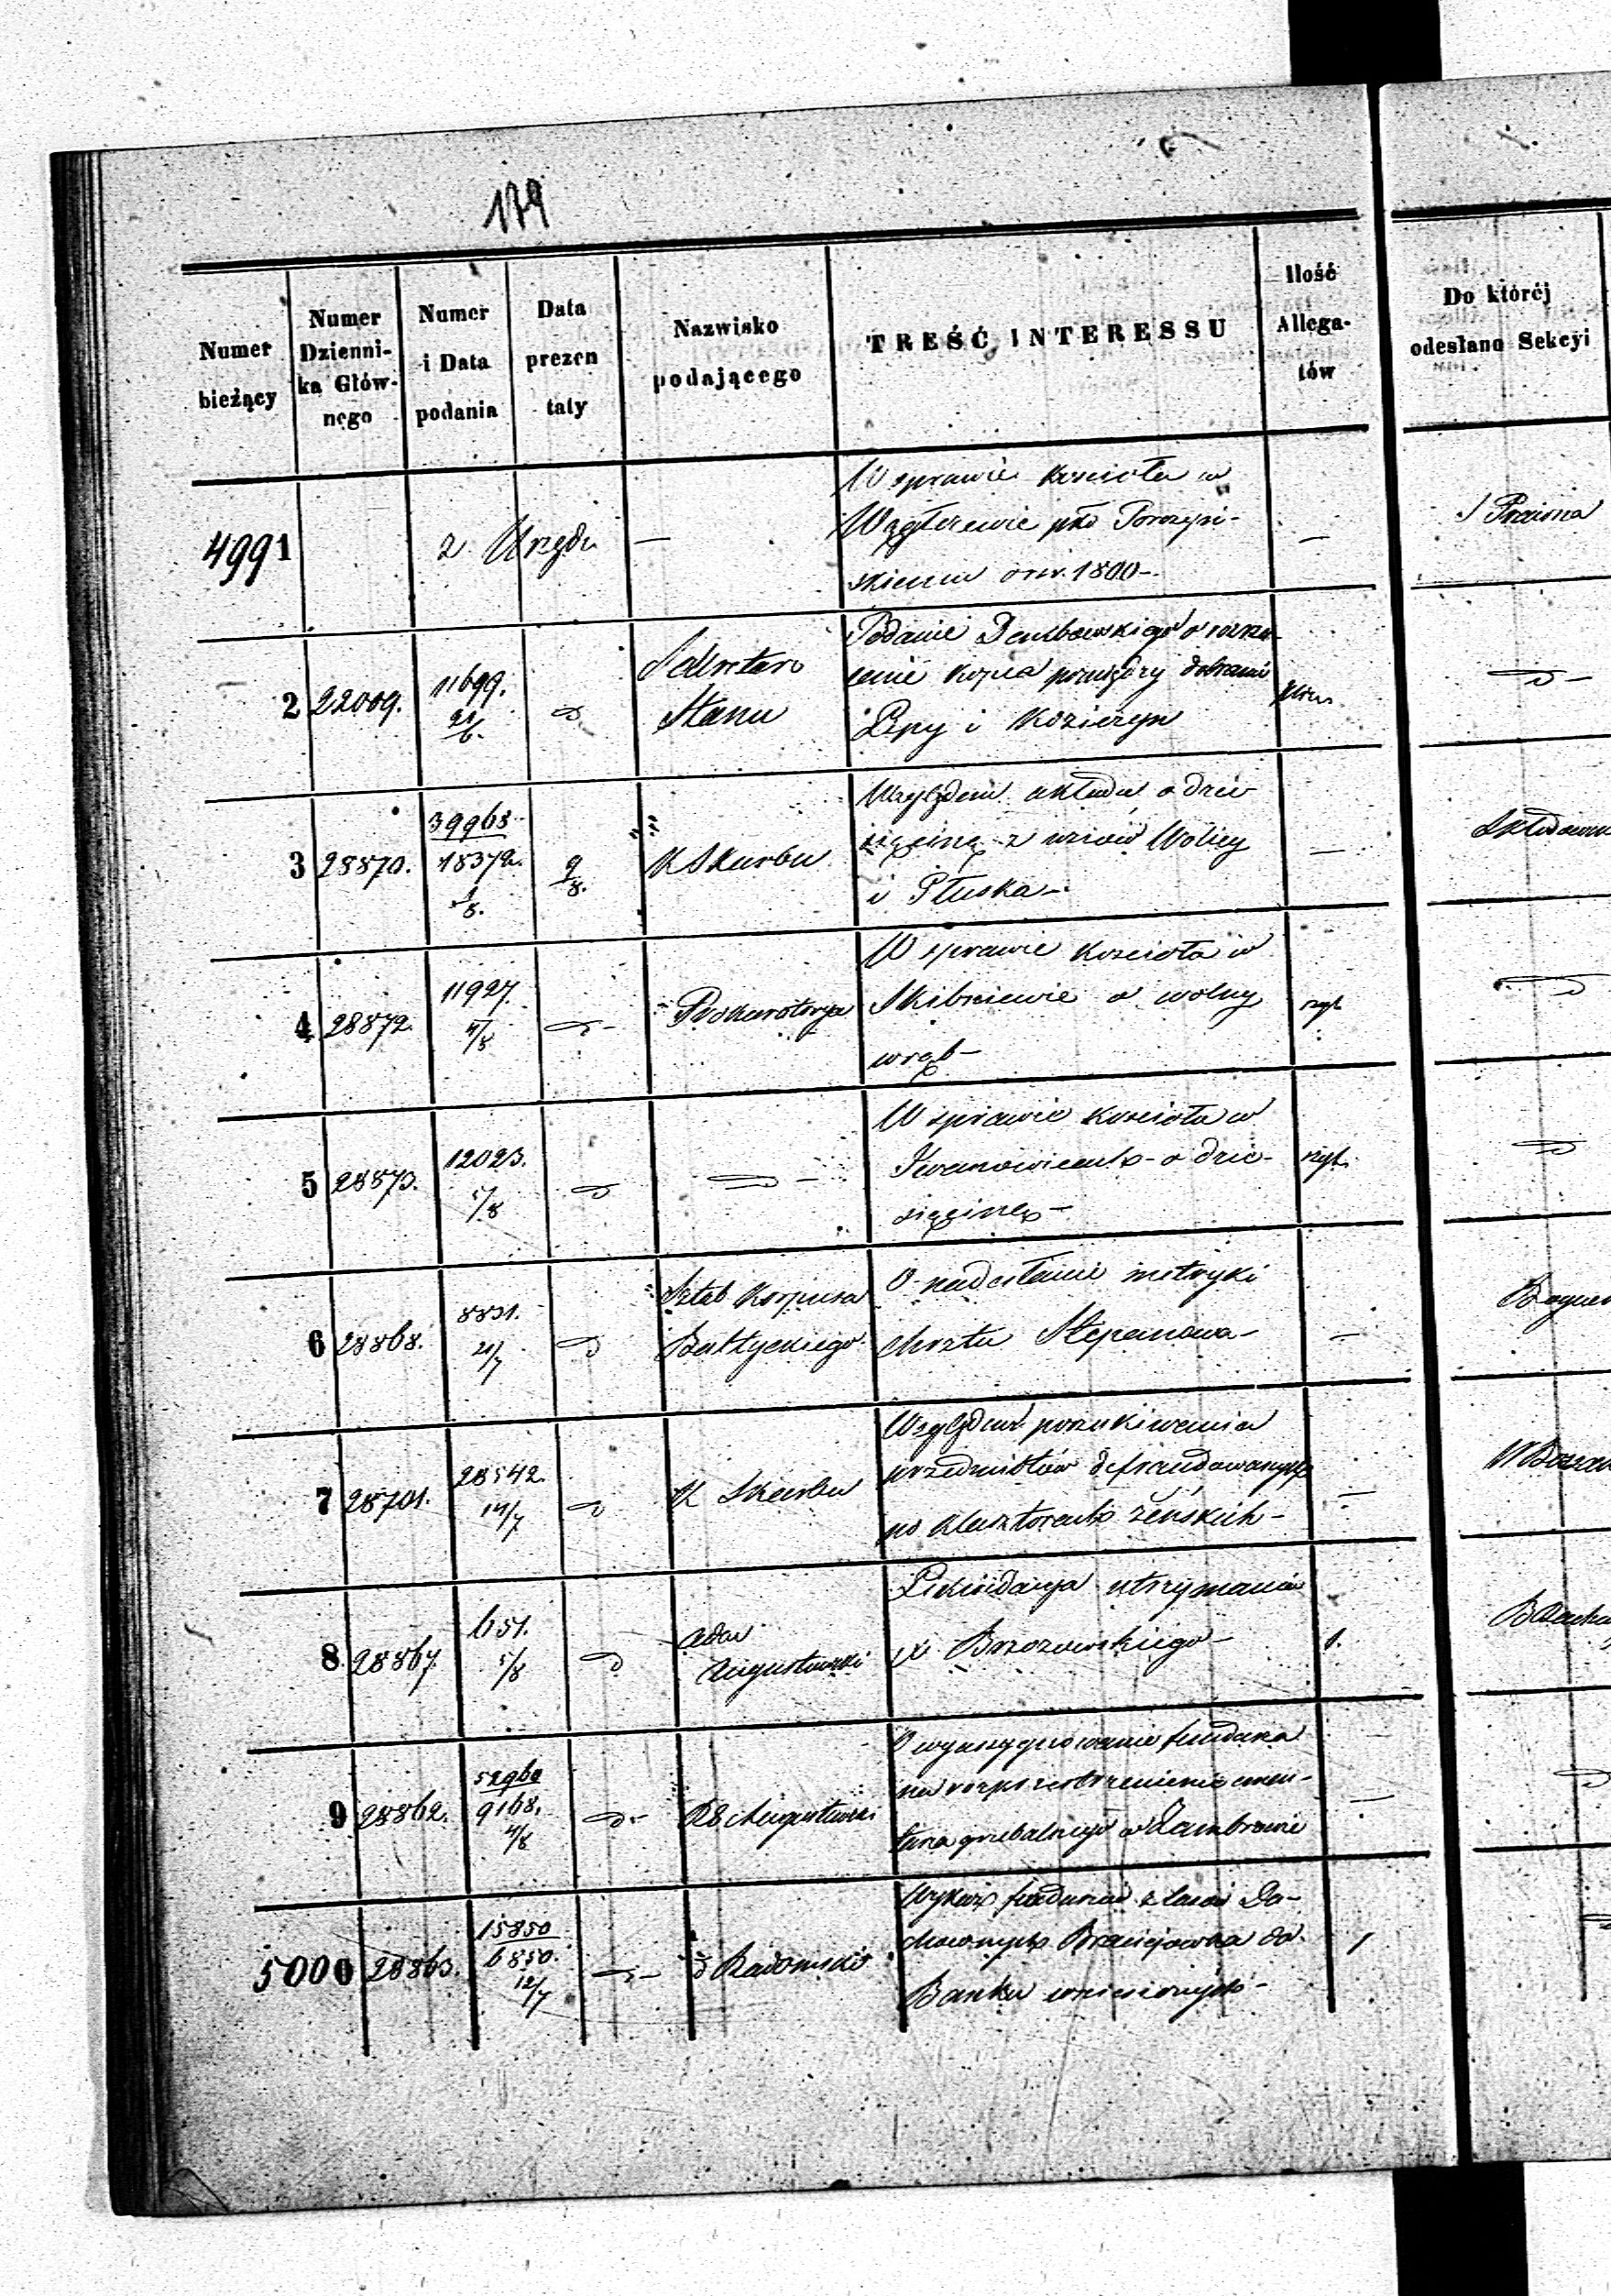 179
Numer bieżący | Numer Dzienni- ka Głów- nego | Numer i Data podania | Data prezen taty | Nazwisko podającego | TREŚĆ INTERESSU | Ilość Allega- tów | Do któréj odesłano Sekcyi
4991
z Urzędu
—
W sprawie kościoła w
skiemu 1800 -
—
2
22009.
11699.
21/6.
Stanu
Podanie
kopca pomiędzy dobrami
i Kozierzyn
3
28870.
39968
18372.
9/8.
K Skarbu
Względem układu o dzie-
sięcinę z wsiów Wolicy
i Płuska -
—
4
28872.
11927.
4/8
Prokuratorya
W sprawie kościoła w
Skibniewie o wolny
wrąb -
5
28873.
12023.
5/8
W sprawie kościoła w
Iwanowicach - o dzie-
sięcinę -
6
28868.
8831.
21/7
Sztab Korpusu
Bałtyckiego
O nadesłanie metryki
chrztu Stepanowa -
—
7
28701.
28542.
14/7
K Skarbu
Względem poszukiwania
przedmiotów defraudowanych
po klasztorach żeńskich -
—
8
28867.
651.
5/8
Adm
Augustowski
Likwidacya utrzymania
X Brzozowskiego -
1.
9
28862.
52960
9168.
4/8
RG Augustowski
O wyassygnowanie fundusza
na rozprzestrzenienie cmen-
tarza grzebalnego w Zambrowie
—
5000
28863.
15850
6850.
12/7
d Radomski
Wykaz funduszów z lasów Du-
chownych do
Banku wniesionych -
1